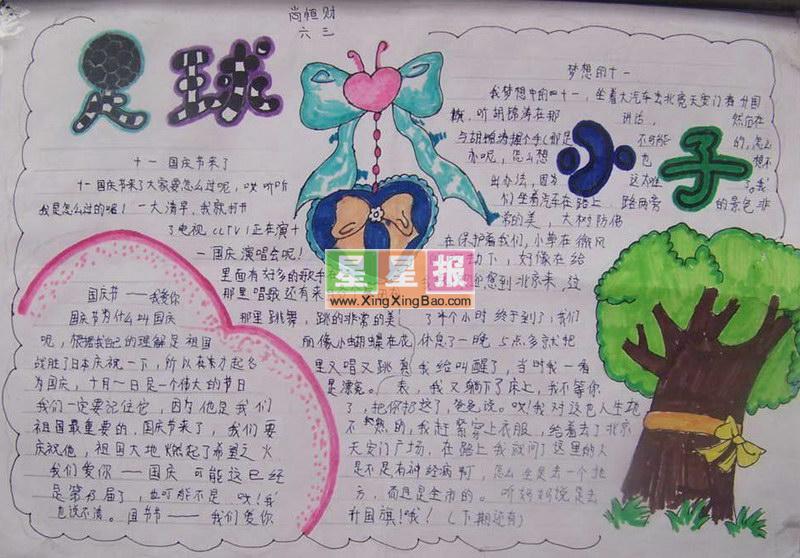 足球
尚恒财
六三
小子
十一国庆节来了
十一国庆节来了大家要怎么过呢,哎听听
我是怎么过的喔!一大清早,我就打开
了电视CCTV1正在演十
一国庆演唱会呢!
里面有好多的歌手在
那里唱歌还有来
那里跳舞,跳的非常的美
丽像小蝴蝶在花
里又唱又跳
国庆节——我爱你
国庆节为什么叫国庆
呢,根据我自己的理解是祖国
战胜了日本庆祝一下,所以在东方起名
为国庆,十月一日是一个伟大的节日
我们一定要记住它,因为他是我们
祖国最重要的,国庆节来了,我们要
庆祝他,祖国大地燃起了希望之火
我们爱你——国庆可能这已经
是第 届了,也可能不是,哎!我
也说不清。国节节——我们爱你
梦想的十一
我梦想中的十一,坐着大汽车去北京天安门看升国
旗,听胡锦涛在那 讲话,然后在
与胡锦涛握个手(那是 不可能的,怎么
办呢,怎么想 也 想不
出办法,因为 这太难了。我
们坐着汽车在路上,路两旁的景色非
常的美,大树仿佛
在保护着我们,小草在微风
动下,好像在给
您到北京来,这
了半个小时终于到了,我们
休息了一晚,5点多就把
我给叫醒了,当时我一看
是漆黑。我又躺下了床上,我不等你
了,把你扔这了,爸爸说。哎!我对这也人生地
不熟的,我赶紧穿上衣服,给着去了北京
天安门广场,在路上我就问了这里的人
是不是有神经病啊,怎么坐是去一个地
方,而且是全市的。听妈妈说是去
升国旗!哦!(下期还有)
星星报
www.XingXingBao.com